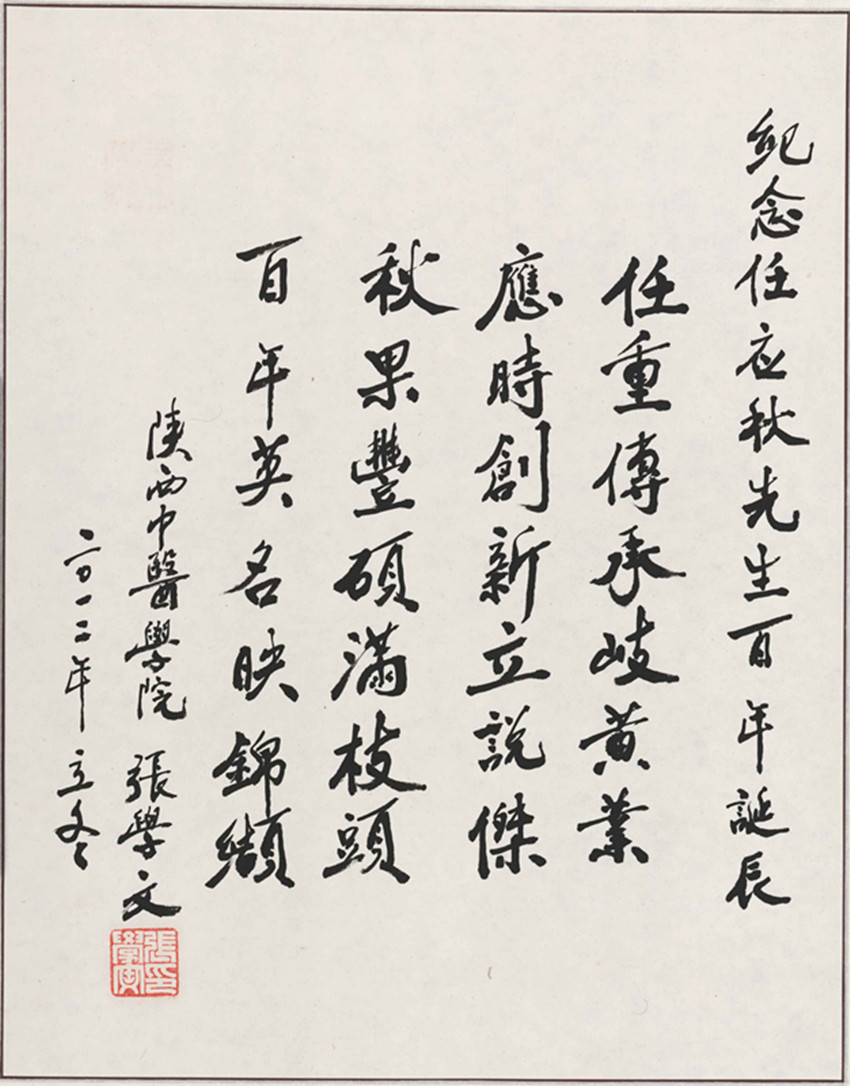 纪念任应秋先生百年誕辰
任重傳承岐黄業
應時創新立說傑
秋果豐碩滿枝頭
百年英名映錦纈
陕西中醫學院 張學文
二〇一二年立冬
張學文印